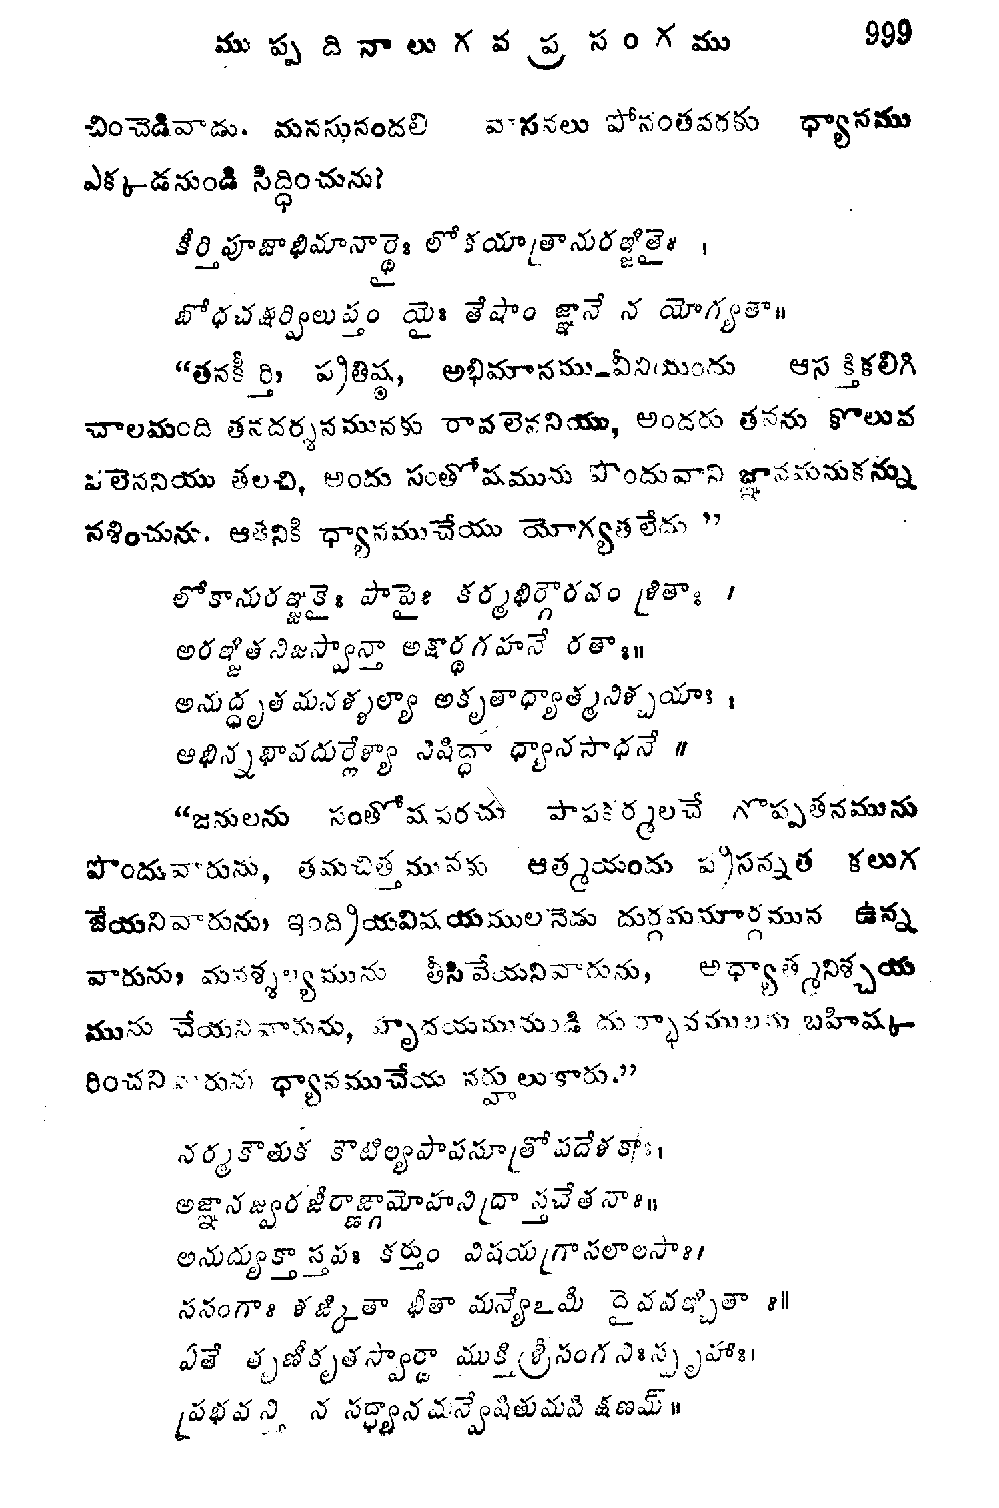 ముప్పదినాలుగవ ప్రసంగము 999
చించెడివాడు. మనస్సునందలి వాసనలు పోనంతవరకు ధ్యానము
ఎక్కడనుండి సిద్ధించును?
కీర్తి పూజాభిమానార్థైః లోకయాత్రానురఞ్జితైః ।
బోధచక్షుర్విలుప్తం యైః తేషాం జ్ఞానే న యోగ్యతా॥
“తనకీర్తి, ప్రతిష్ఠ, అభిమానము-వీనియందు ఆసక్తికలిగి
చాలమంది తనదర్శనమునకు రావలెననియు, అందరు తనను కొలువ
వలెననియు తలచి, అందు సంతోషమును పొందువాని జ్ఞానమనుకన్ను
నశించును. ఆతనికి ధ్యానముచేయు యోగ్యతలేదు ”
లోకానురఞ్జకైః పాపైః కర్మభిర్గౌరవం శ్రితాః ।
అరఞ్జితనిజస్వాన్తా అక్షార్థగహనే రతాః॥
అనుద్ధృతమనశ్శల్యా అకృతాధ్యాత్మనిశ్చయాః ।
అభిన్నభావదుర్లేశ్యా నిషిద్ధా ధ్యానసాధనే ॥
“జనులను సంతోషపరచు పాపకర్మలచే గొప్పతనమును
పొందువారును, తమచిత్తమునకు ఆత్మయందు ప్రసన్నత కలుగ
జేయనివారును, ఇంద్రియవిషయములనెడు దుర్గమమార్గమున ఉన్న
వారును, మనశ్శల్యమును తీసివేయనివారును, అధ్యాత్మనిశ్చయ
మును చేయనివారును, హృదయమునుండి దుర్భావములను బహిష్క
రించనివారును ధ్యానముచేయ నర్హులుకారు.”
నర్మకౌతుక కౌటిల్యపాపసూత్రోపదేశకాః।
అజ్ఞానజ్వరజీర్ణాఙ్గామోహనిద్రా స్తచేతనాః॥
అనుద్యుక్తాస్తపః కర్తుం విషయగ్రాసలాలసాః।
ససంగాః శఙ్కితా భీతా మన్యేఽమీ దైవవఞ్చితా ః॥
ఏతే తృణీకృతస్వార్థా ముక్తిశ్రీసంగనిఃస్పృహాః।
ప్రభవన్తి న సద్ధ్యానమన్వేషితుమపి క్షణమ్॥